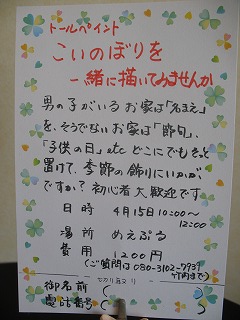 トールペイント
こいのぼりを
一緒に描いてみませんか
男の子がいるお家は「名まえ」
を、そうでないお家は「節句」、
「子供の日」etc どこにでもちょっと
置けて、季節の飾りにいかが
ですか？初心者大歓迎です
日時 4月15日 10:00〜
12:00
場所 めえぷる
費用 1200円
(ご質問は080-3102-7939
竹内まで)
キリトリ
御名前 (
電話番号 (